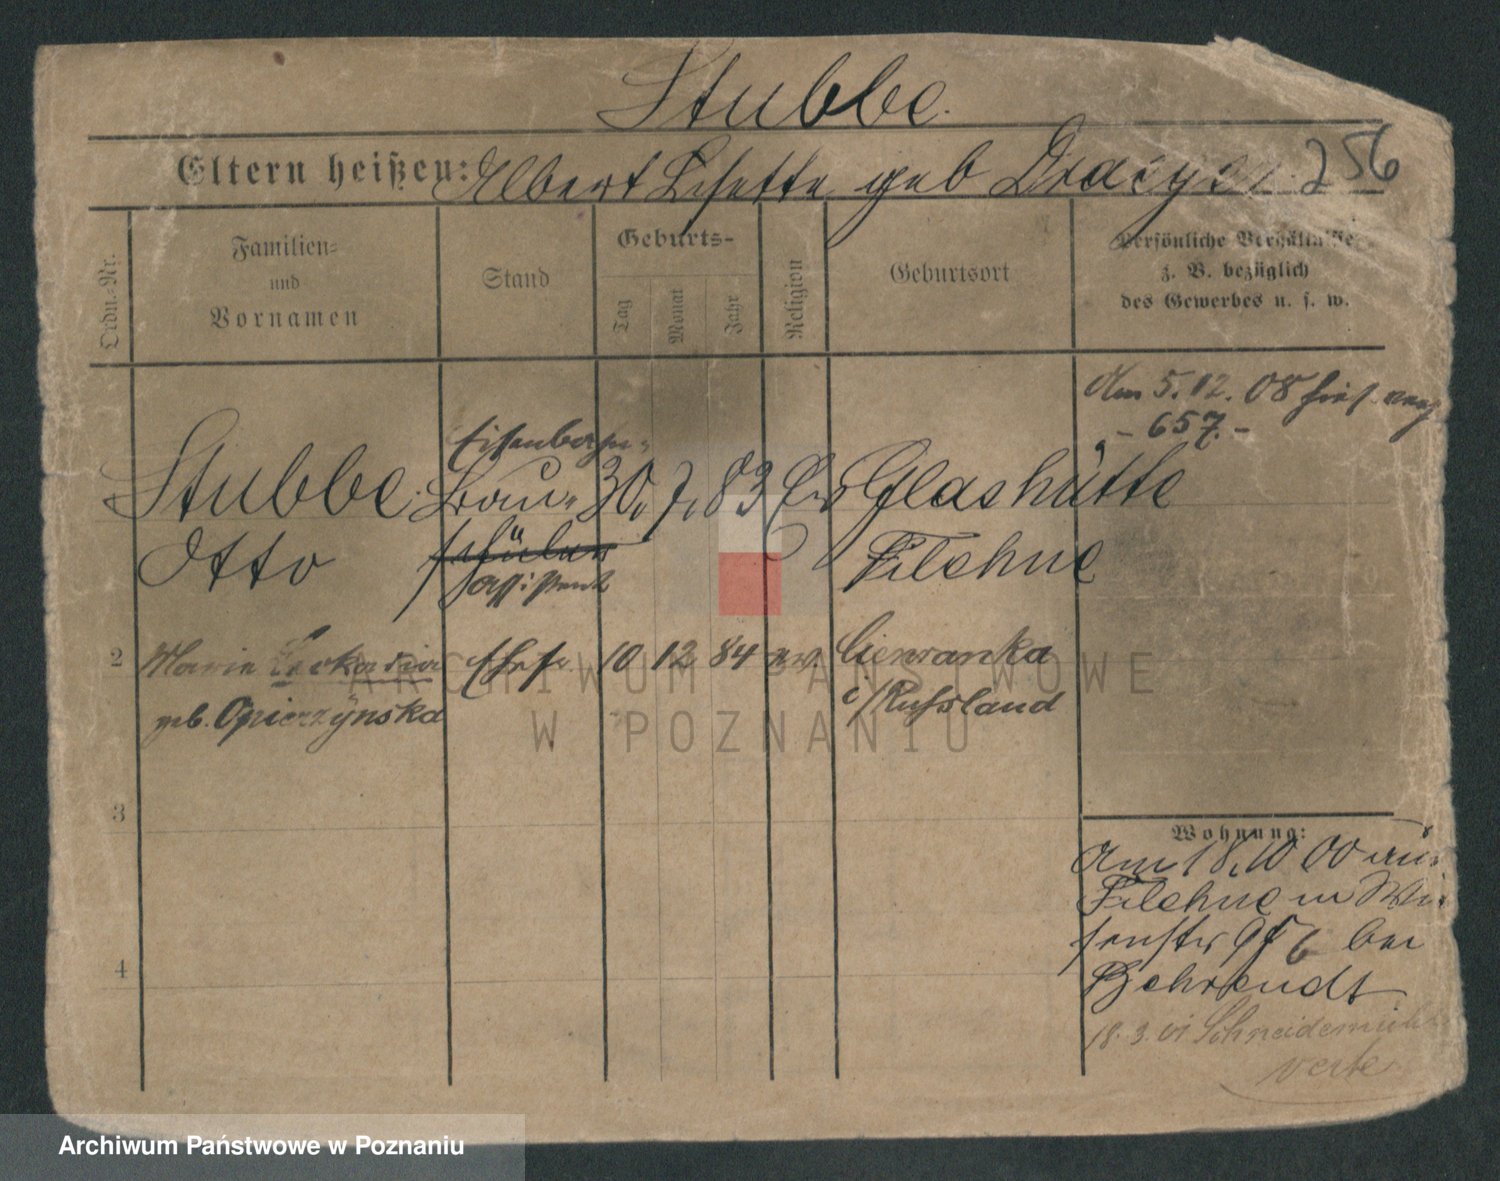 Stubbe.
Eltern heißen: Albert Lisette geb 256
Ordn.-Nr.
Familien- und Vornamen
Stand
Geburts-
Tag
Monat
Jahr
Religion
Geburtsort
Persönliche Verhältnisse
z. B. bezüglich
des Gewerbes u. s. w.
Am 5.12.08 hies.
- 657. -
Eisenbahn-
Stubbe. Bau- 30. 7. 83 Ev Glashütte
Otto schüler Filehne
assistent
2 Marie Leokadia Ehefr. 10 12 84 ev.
geb. Opierzynska i/Russland
3
4
Wohnung:
Am 18.10 00 aus
Filehne in
bei
Behrendt
18.3.01 Schneidemühl
verte
ARCHIWUM PAŃSTWOWE
W POZNANIU
Archiwum Państwowe w Poznaniu